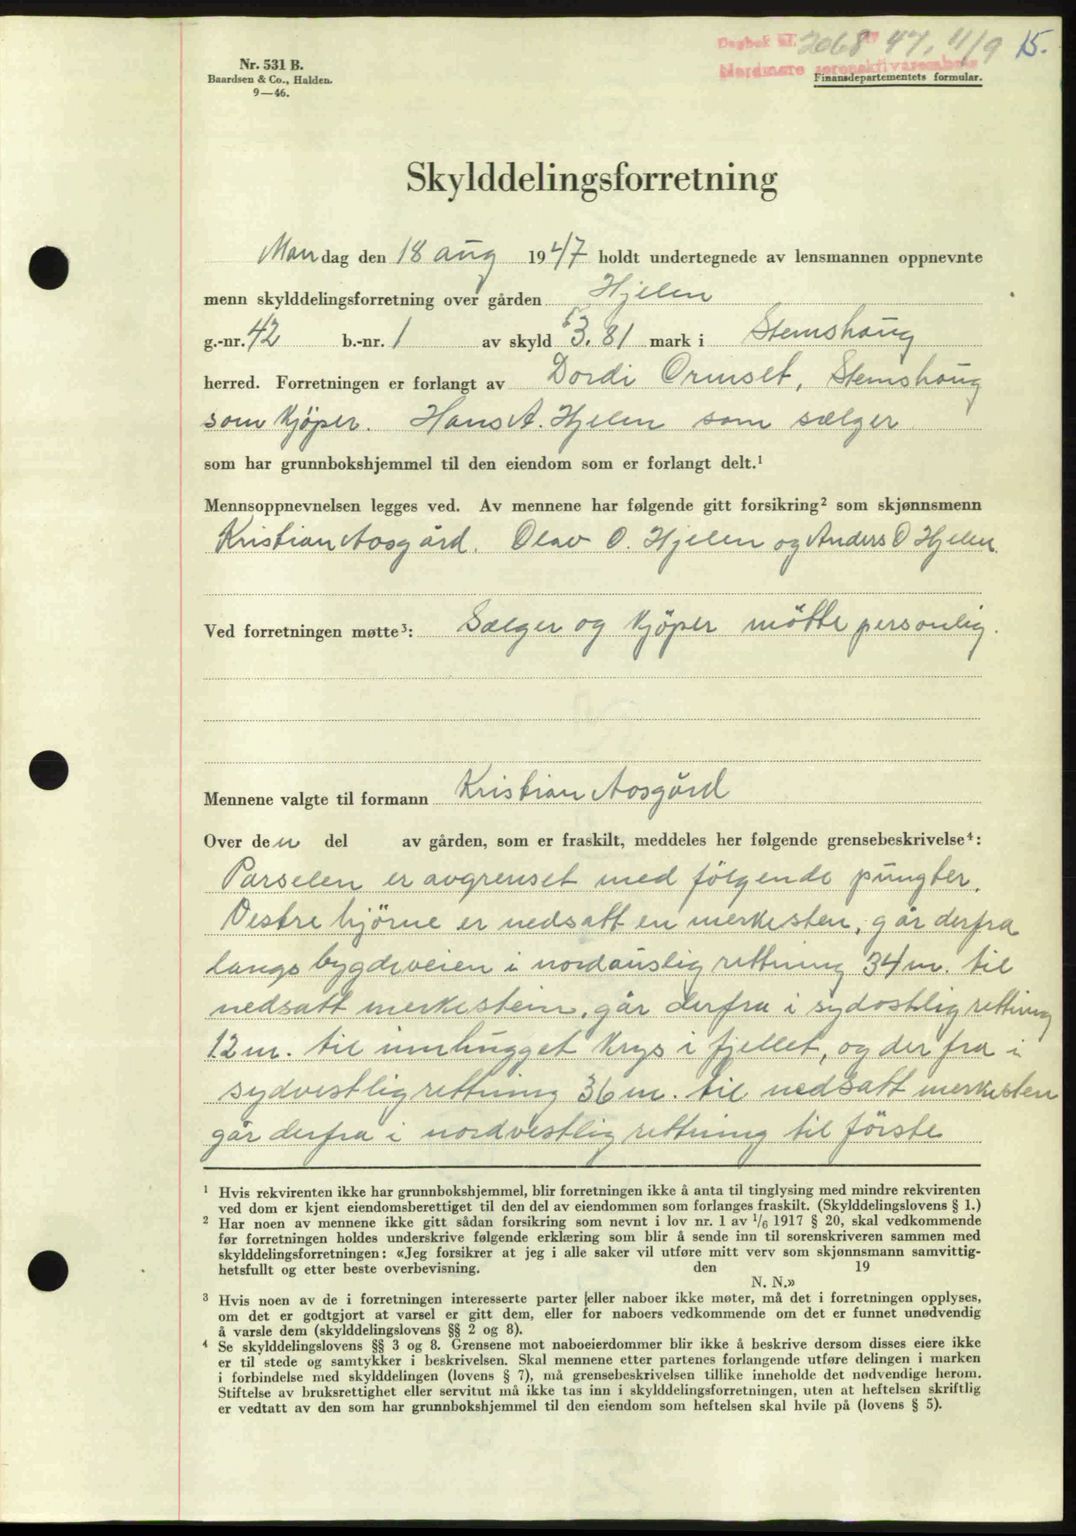 Dagbok nr. 2068 47, 11/9 15.
Nordmøre sorenskriverembete
Nr. 531 B.
Baardsen & Co., Halden.
9—46.
Finansdepartementets formular.
Skylddelingsforretning
Mandag den 18 aug 1947 holdt undertegnede av lensmannen oppnevnte
menn skylddelingsforretning over gården Hjelen
g.-nr. 42 b.-nr. 1 av skyld 3.81 mark i Stemshaug
herred. Forretningen er forlangt av Dordi Ormset, Stemshaug
som kjöper. Hans A. Hjelen som sælger
som har grunnbokshjemmel til den eiendom som er forlangt delt.¹
Mennsoppnevnelsen legges ved. Av mennene har følgende gitt forsikring² som skjønnsmenn
Kristian Aasgård. Olav O. Hjelen og Anders O Hjelen.
Ved forretningen møtte³: Sælger og kjöper mötte personlig.
Mennene valgte til formann Kristian Aasgård
Over den del av gården, som er fraskilt, meddeles her følgende grensebeskrivelse⁴:
Parselen er avgrenset med fölgende pungter.
Vestre hjörne er nedsatt en merkesten, går derfra
langs bygdeveien i nordauslig rettning 34 m. til
nedsatt merkestein, går derfra i sydostlig rettning
12 m. til innhugget krys i fjellet, og der fra i
sydvestlig rettning 36 m. til nedsatt merkesten
går derfra i nordvestlig rettning til förste
¹ Hvis rekvirenten ikke har grunnbokshjemmel, blir forretningen ikke å anta til tinglysing med mindre rekvirenten
ved dom er kjent eiendomsberettiget til den del av eiendommen som forlanges fraskilt. (Skylddelingslovens § 1.)
² Har noen av mennene ikke gitt sådan forsikring som nevnt i lov nr. 1 av 1/6 1917 § 20, skal vedkommende
før forretningen holdes underskrive følgende erklæring som blir å sende inn til sorenskriveren sammen med
skylddelingsforretningen: «Jeg forsikrer at jeg i alle saker vil utføre mitt verv som skjønnsmann samvittig-
hetsfullt og etter beste overbevisning. den 19
N. N.»
³ Hvis noen av de i forretningen interesserte parter eller naboer ikke møter, må det i forretningen opplyses,
om det er godtgjort at varsel er gitt dem, eller for naboers vedkommende om det er funnet unødvendig
å varsle dem (skylddelingslovens §§ 2 og 8).
⁴ Se skylddelingslovens §§ 3 og 8. Grensene mot naboeierdommer blir ikke å beskrive dersom disses eiere ikke
er til stede og samtykker i beskrivelsen. Skal mennene etter partenes forlangende utføre delingen i marken
i forbindelse med skylddelingen (lovens § 7), må grensebeskrivelsen tillike inneholde det nødvendige herom.
Stiftelse av bruksrettighet eller servitut må ikke tas inn i skylddelingsforretningen, uten at heftelsen skriftlig
er vedtatt av den som har grunnbokshjemmel til den eiendom som heftelsen skal hvile på (lovens § 5).